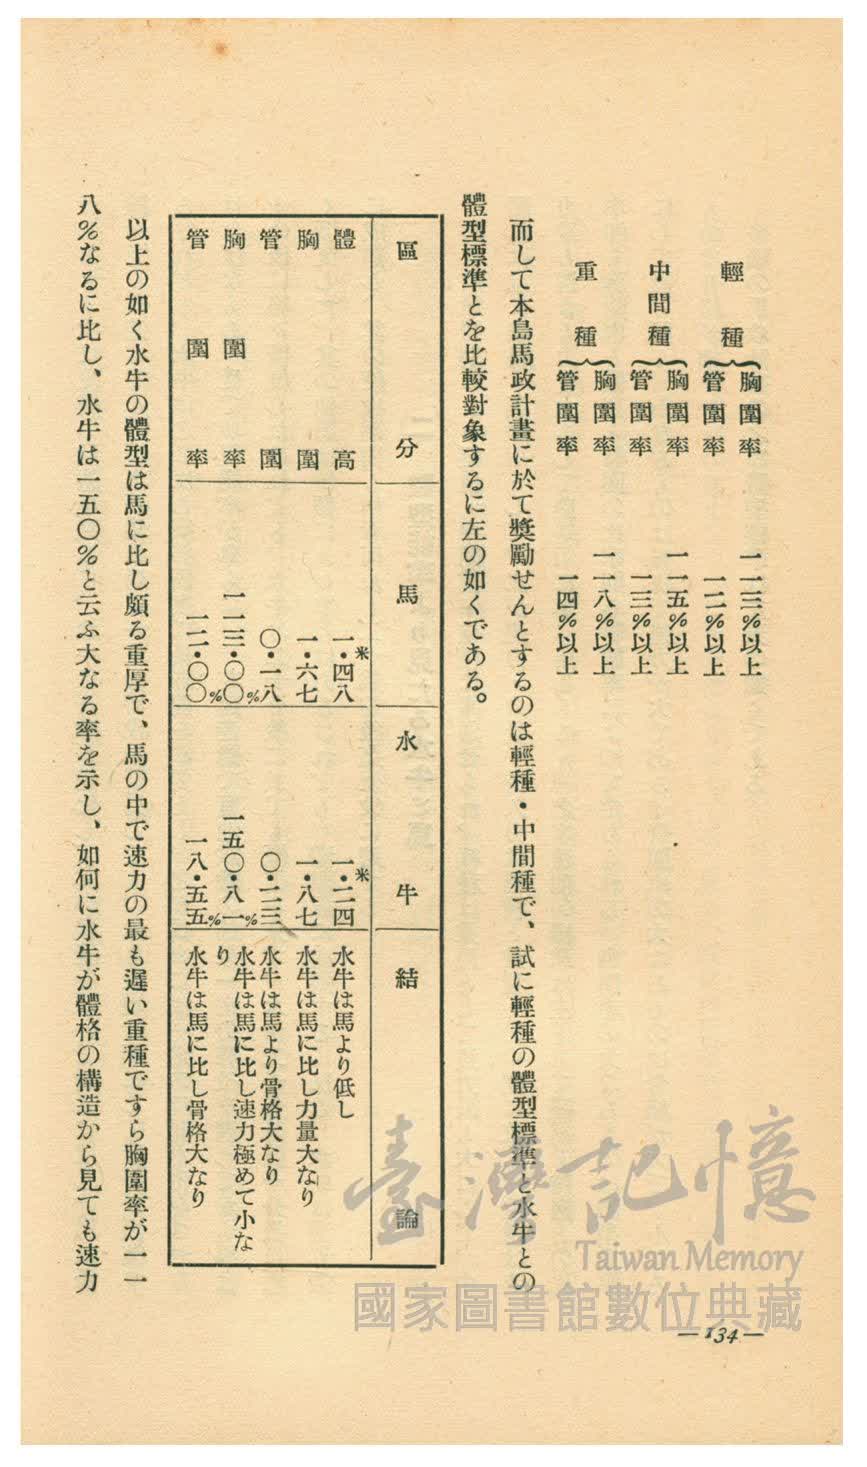 輕種
胸圍率 一一三%以上
管圍率 一二%以上
中間種
胸圍率 一一五%以上
管圍率 一三%以上
重種
胸圍率 一一八%以上
管圍率 一四%以上
而して本島馬政計畫に於て獎勵せんとするのは輕種・中間種で、試に輕種の體型標準と水牛との
體型標準とを比較對象するに左の如くである。
區分 馬 水牛 結論
體高 一・四八米 一・二四米 水牛は馬より低し
胸圍 一・六七 一・八七 水牛は馬に比し力量大なり
管圍 〇・一八 〇・二三 水牛は馬より骨格大なり
胸圍率 一一三・〇〇% 一五〇・八一% 水牛は馬に比し速力極めて小な
り
管圍率 一二・〇〇% 一八・五五% 水牛は馬に比し骨格大なり
以上の如く水牛の體型は馬に比し頗る重厚で、馬の中で速力の最も遲い重種ですら胸圍率が一一
八%なるに比し、水牛は一五〇%と云ふ大なる率を示し、如何に水牛が體格の構造から見ても速力
—134—
臺灣記憶
Taiwan Memory
國家圖書館數位典藏